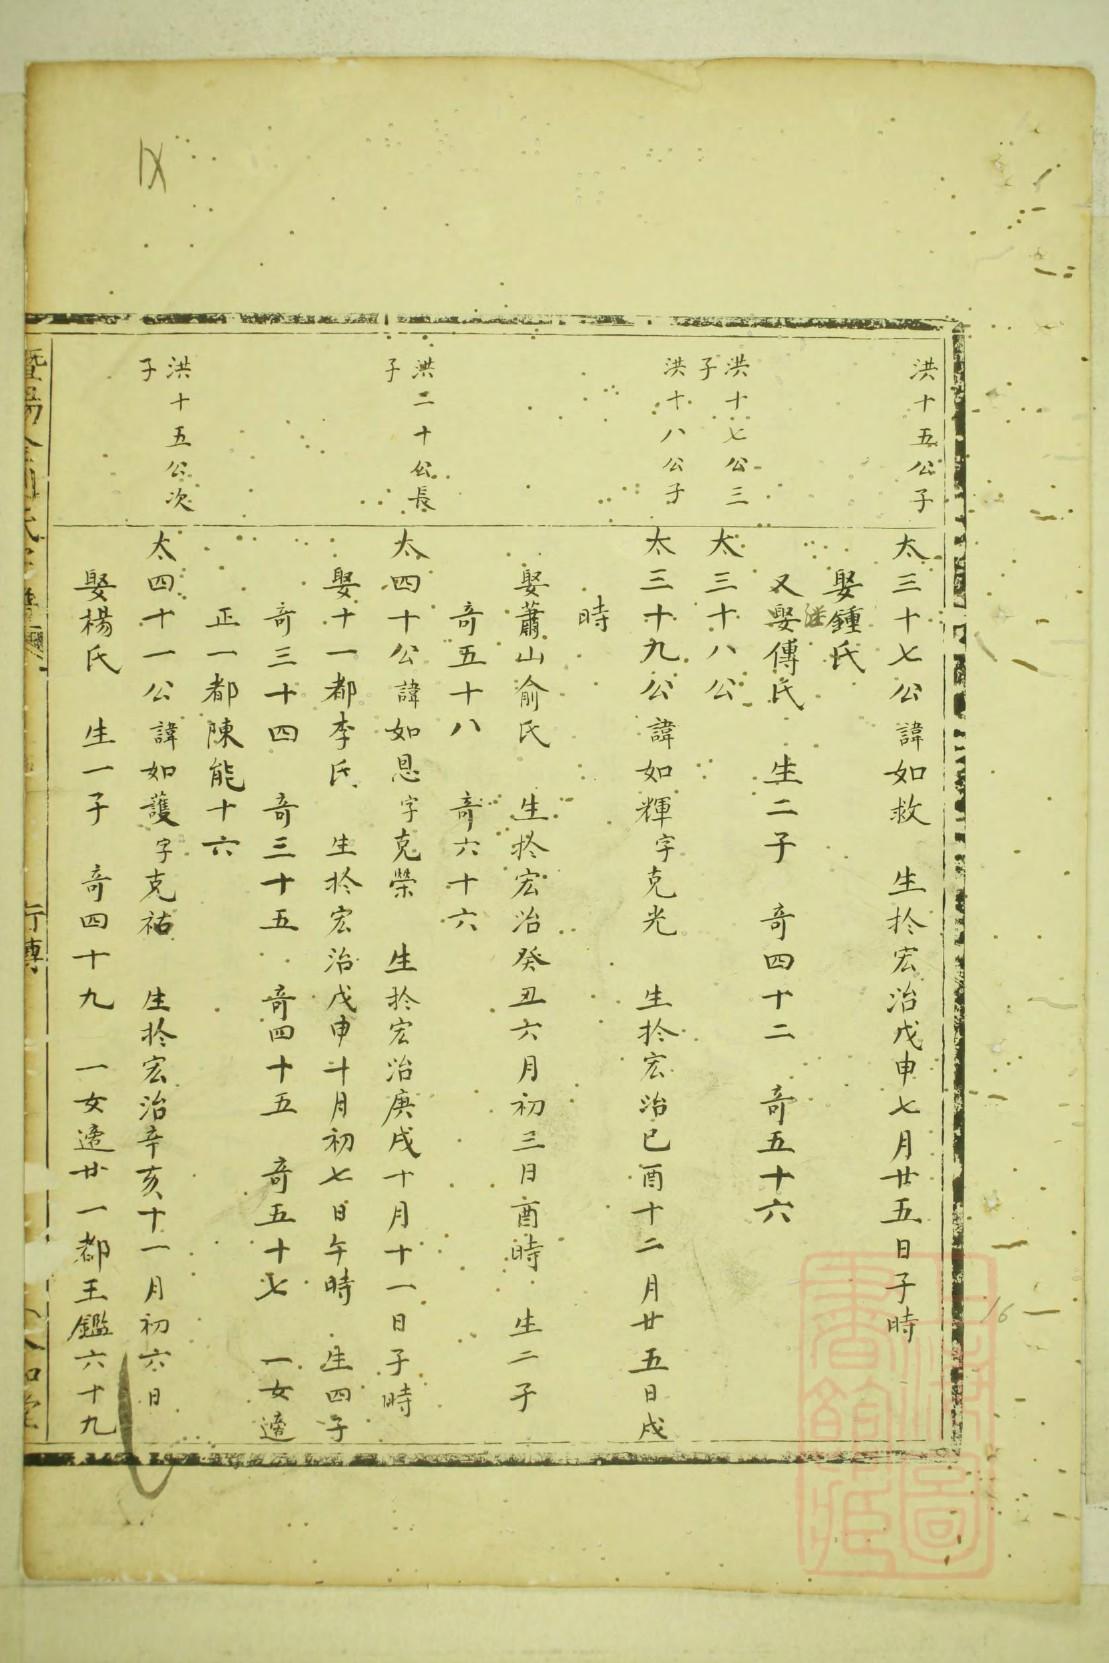 洪十五公子
太三十七公諱如救 生扵宏治戊申七月廿五日子時
娶鍾氏
又娶傅氏 生二子 奇四十二 奇五十六
洪十七公三
子
太三十八公
洪十八公子
太三十九公諱如輝字克光 生扵宏治已酉十二月廿五日戌
時
娶蕭山俞氏 生扵宏治癸丑六月初三日酉時 生二子
奇五十八 奇六十六
洪二十公長
子
太四十公諱如恩字克榮 生扵宏治庚戌十月十一日子時
娶十一都李氏 生扵宏治戊申十月初七日午時 生四子
奇三十四 奇三十五 奇四十五 奇五十七 一女適
正一都陳能十六
洪十五公次
子
太四十一公諱如護字克祐 生扵宏治辛亥十一月初六日
娶楊氏 生一子 奇四十九 一女適廿一都王鑑六十九
暨陽
行傳
16